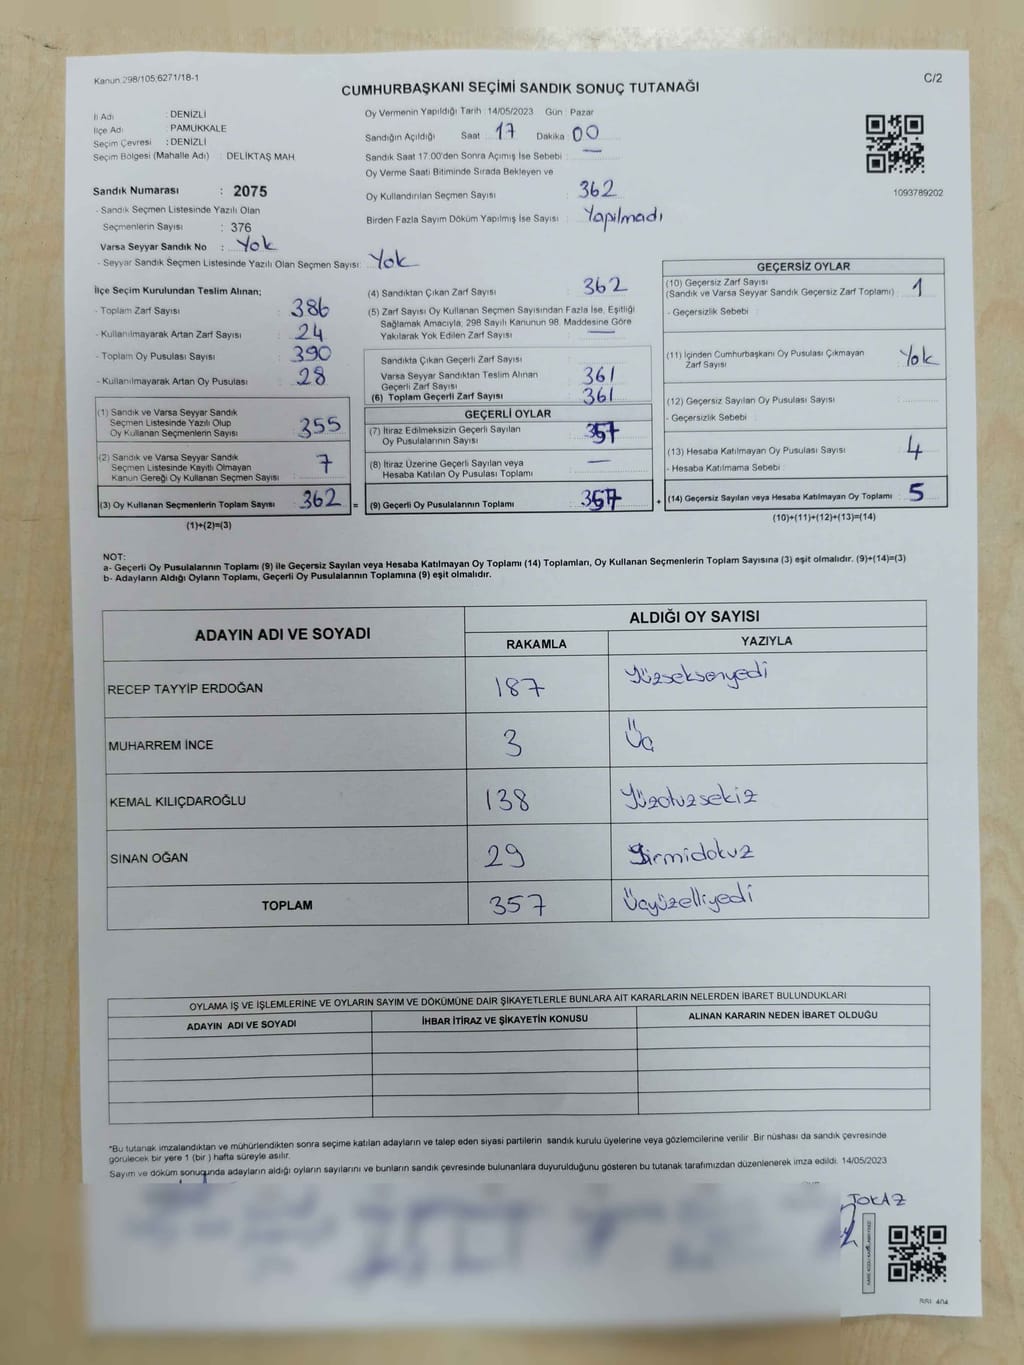 Kanun 298/105;6271/18-1
C/2
CUMHURBAŞKANI SEÇİMİ SANDIK SONUÇ TUTANAĞI
İl Adı : DENİZLİ
İlçe Adı : PAMUKKALE
Seçim Çevresi : DENİZLİ
Seçim Bölgesi (Mahalle Adı) : DELİKTAŞ MAH
Sandık Numarası : 2075
- Sandık Seçmen Listesinde Yazılı Olan
Seçmenlerin Sayısı : 376
Varsa Seyyar Sandık No : Yok
- Seyyar Sandık Seçmen Listesinde Yazılı Olan Seçmen Sayısı: Yok
Oy Vermenin Yapıldığı Tarih :14/05/2023 Gün : Pazar
Sandığın Açıldığı Saat : 17 Dakika : 00
Sandık Saat 17:00'den Sonra Açımış İse Sebebi : —
Oy Verme Saati Bitiminde Sırada Bekleyen ve
Oy Kullandırılan Seçmen Sayısı : 362
Birden Fazla Sayım Döküm Yapılmış İse Sayısı : Yapılmadı
1093789202
İlçe Seçim Kurulundan Teslim Alınan;
- Toplam Zarf Sayısı : 386
- Kullanılmayarak Artan Zarf Sayısı : 24
- Toplam Oy Pusulası Sayısı : 390
- Kullanılmayarak Artan Oy Pusulası : 28
(1) Sandık ve Varsa Seyyar Sandık
Seçmen Listesinde Yazılı Olup
Oy Kullanan Seçmenlerin Sayısı : 355
(2) Sandık ve Varsa Seyyar Sandık
Seçmen Listesinde Kayıtlı Olmayan
Kanun Gereği Oy Kullanan Seçmen Sayısı : 7
(3) Oy Kullanan Seçmenlerin Toplam Sayısı : 362 =
(1)+(2)=(3)
(4) Sandıktan Çıkan Zarf Sayısı : 362
(5) Zarf Sayısı Oy Kullanan Seçmen Sayısından Fazla İse, Eşitliği
Sağlamak Amacıyla, 298 Sayılı Kanunun 98. Maddesine Göre
Yakılarak Yok Edilen Zarf Sayısı : —
Sandıkta Çıkan Geçerli Zarf Sayısı :
Varsa Seyyar Sandıktan Teslim Alınan
Geçerli Zarf Sayısı : 361
(6) Toplam Geçerli Zarf Sayısı : 361
GEÇERLİ OYLAR
(7) İtiraz Edilmeksizin Geçerli Sayılan
Oy Pusulalarının Sayısı : 357
(8) İtiraz Üzerine Geçerli Sayılan veya
Hesaba Katılan Oy Pusulası Toplamı : —
(9) Geçerli Oy Pusulalarının Toplamı : 357 +
GEÇERSİZ OYLAR
(10) Geçersiz Zarf Sayısı
(Sandık ve Varsa Seyyar Sandık Geçersiz Zarf Toplamı) : 1
- Geçersizlik Sebebi :
(11) İçinden Cumhurbaşkanı Oy Pusulası Çıkmayan
Zarf Sayısı : Yok
(12) Geçersiz Sayılan Oy Pusulası Sayısı :
- Geçersizlik Sebebi :
(13) Hesaba Katılmayan Oy Pusulası Sayısı : 4
- Hesaba Katılmama Sebebi :
(14) Geçersiz Sayılan veya Hesaba Katılmayan Oy Toplamı : 5
(10)+(11)+(12)+(13)=(14)
NOT:
a- Geçerli Oy Pusulalarının Toplamı (9) ile Geçersiz Sayılan veya Hesaba Katılmayan Oy Toplamı (14) Toplamları, Oy Kullanan Seçmenlerin Toplam Sayısına (3) eşit olmalıdır. (9)+(14)=(3)
b- Adayların Aldığı Oyların Toplamı, Geçerli Oy Pusulalarının Toplamına (9) eşit olmalıdır.
ADAYIN ADI VE SOYADI
ALDIĞI OY SAYISI
RAKAMLA YAZIYLA
RECEP TAYYİP ERDOĞAN 187 Yüzseksenyedi
MUHARREM İNCE 3 Üç
KEMAL KILIÇDAROĞLU 138 Yüzotuzsekiz
SİNAN OĞAN 29 Yirmidokuz
TOPLAM 357 Üçyüzelliyedi
OYLAMA İŞ VE İŞLEMLERİNE VE OYLARIN SAYIM VE DÖKÜMÜNE DAİR ŞİKAYETLERLE BUNLARA AİT KARARLARIN NELERDEN İBARET BULUNDUKLARI
ADAYIN ADI VE SOYADI İHBAR İTİRAZ VE ŞİKAYETİN KONUSU ALINAN KARARIN NEDEN İBARET OLDUĞU
*Bu tutanak imzalandıktan ve mühürlendikten sonra seçime katılan adayların ve talep eden siyasi partilerin sandık kurulu üyelerine veya gözlemcilerine verilir. Bir nüshası da sandık çevresinde
görülecek bir yere 1 (bir ) hafta süreyle asılır.
Sayım ve döküm sonuçunda adayların aldığı oyların sayılarını ve bunların sandık çevresinde bulunanlara duyurulduğunu gösteren bu tutanak tarafımızdan düzenlenerek imza edildi. 14/05/2023
TOKAZ